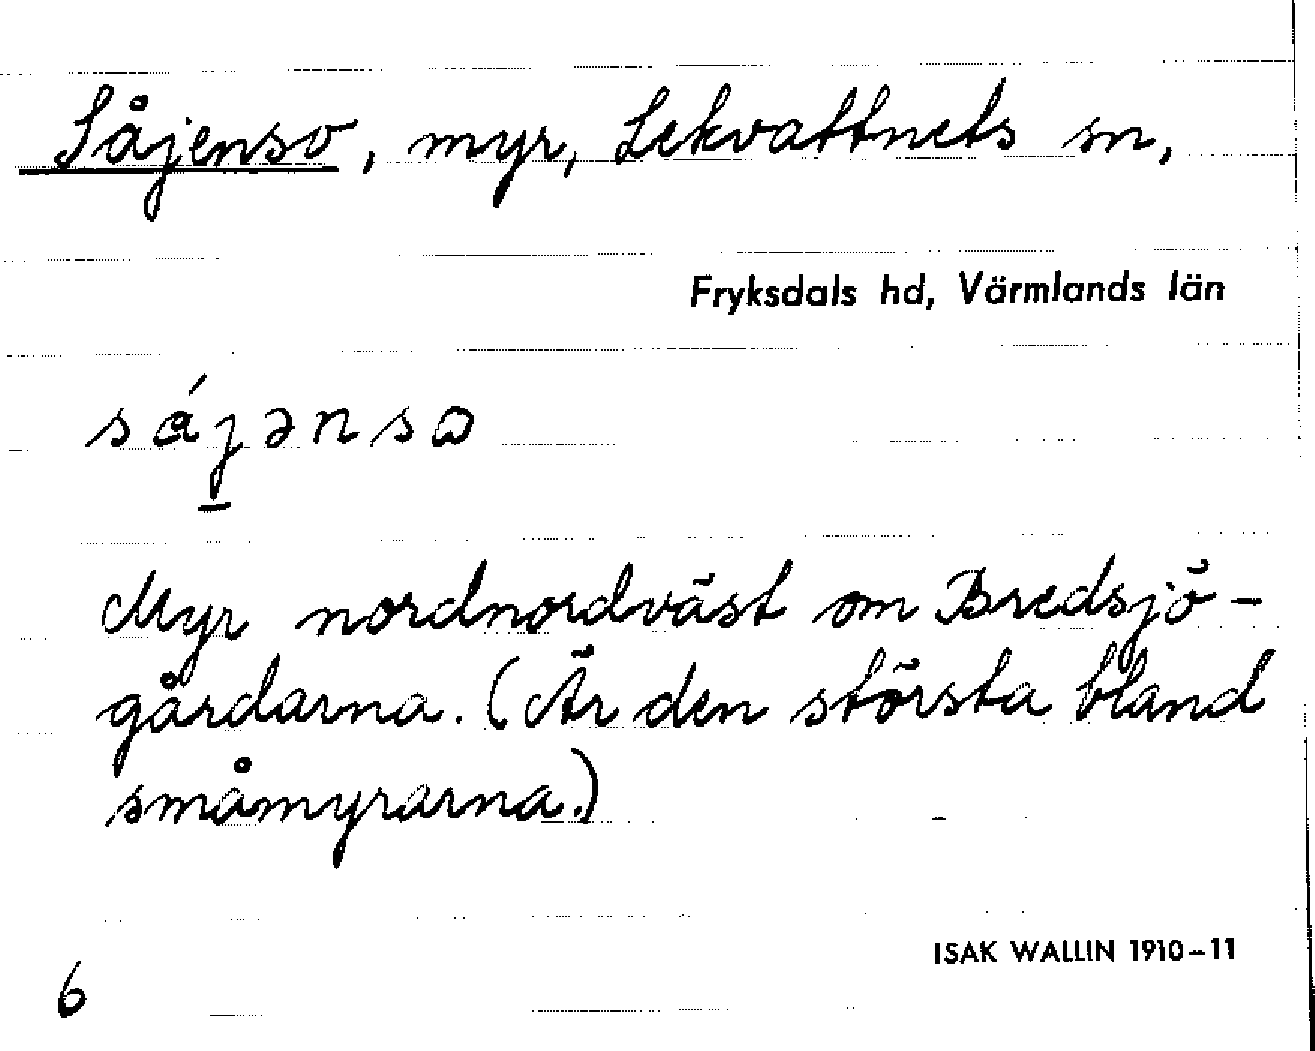 Såjenso, myr, Lekvattnets sn,
Fryksdals hd, Värmlands län
sájənsɷ
Myr nordnordväst om Bredsjö-
gårdarna. (Är den största bland
småmyrarna.)
ISAK WALLIN 1910-11
6